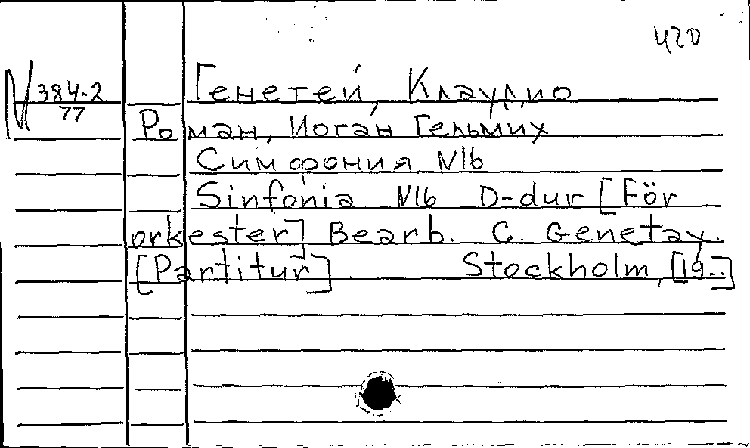 420
N 384-2
77
Генетей, Клаудио
Роман, Иоган Гельмих
Симфония N16
Sinfonia N16 D-dur [För
orkester] Bearb. C. Genetay.
[Partitur] Stockholm, [19..]